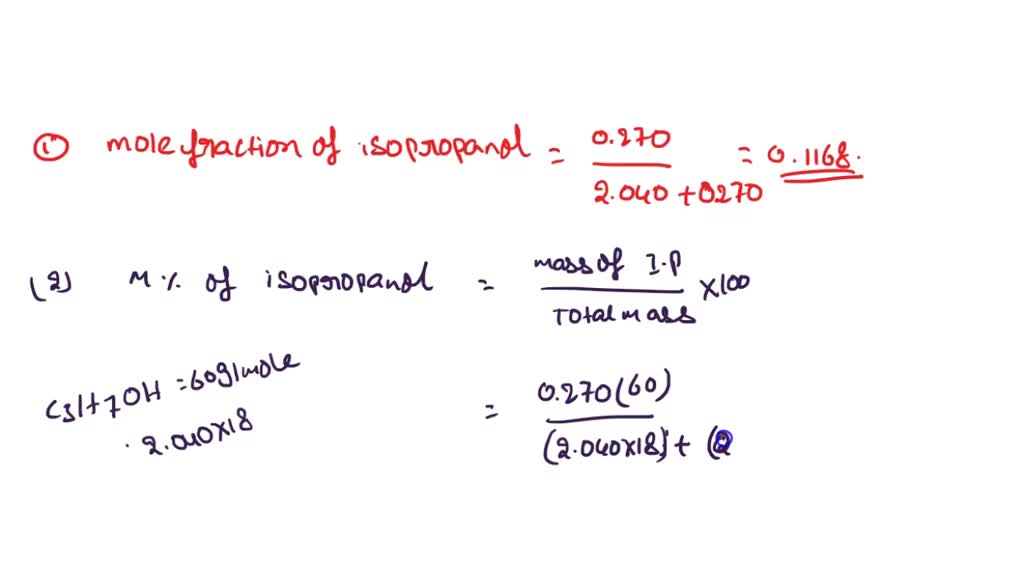 (1) mole fraction of isopropanol = 0.270 / 2.040 + 0.270 = 0.1168.
(2) M % of isopropanol = mass of I.P / Total mass × 100
C3H7OH = 60g/mole
. 2.040×18
= 0.270(60) / (2.040×18) + (2